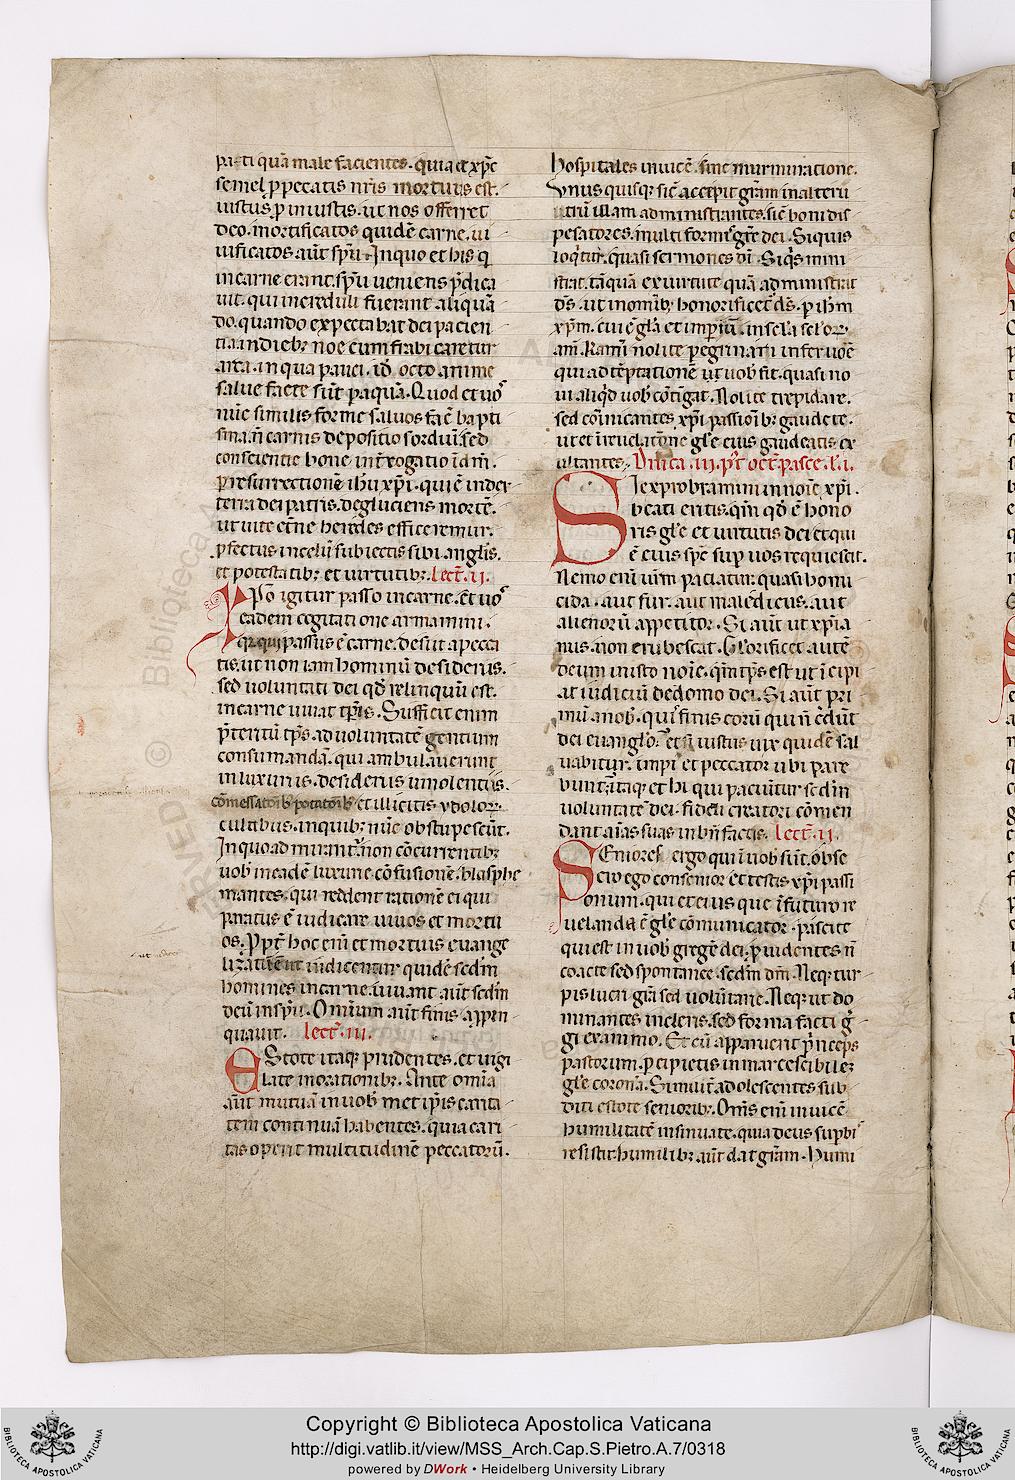 pati quā male facientes. quia et xp̄c
semel p̄ peccatis nr̄is mortuus est.
iustus p̄ iniustis. ut nos offerret
deo. mortificatos quidē carne. ui
uificatos aūt spū. In quo et his q̄
in carne erant. spū ueniens p̄dica
uit. qui increduli fuerant aliquā
do. quando expectabat dei pacien
tia in dieb; noe cum fabricaretur
arca. in qua pauci. id ē octo anime
salue facte sūt p aquā. Quod et uos
nūc similis forme saluos facē bapti
sma. n̄ carnis depositio sordiū. sed
conscientie bone int̄rogatio ī dm̄.
p resurrectionē ihū xp̄i. qui ē in dex
tera dei patris. degluciens mortē.
ut uite et̄ne heredes efficeremur.
p̄fectus in celū subiectis sibi anglis.
et potestatib; et uirtutib; lect̄. ii.
Xp̄o igitur passo in carne. et uos
eadem cogitatione armamini.
Qr̄ qui passus ē carne. desiit a pecca
tis. ut non iam hominū desideriis.
sed uoluntati dei qd̄ relinquū est.
in carne uiuat tp̄ris. Sufficit enim
p̄teritū tp̄s ad uoluntatē gentium
consumandā. qui ambulauerunt
in luxuriis. desideriis uinolentiis.
cōmessatōib; potatōib; et illicitis ydolor;
cultibus. in quib; nūc obstupescūt.
In quo admirant̄. non cōcurrentib;
uob in eadē luxurie cōfusionē. blasphe
mantes. qui reddent rationē ei qui
paratus ē iudicare uiuos et mortu
os. Ppt̄ hoc em̄ et mortuis euange
lizatū ē ut iudicentur quidē scdm̄
homines in carne. uiuant aūt scdm̄
deū in spū. Omium aūt finis appin
quauit. lect̄. iii.
EStote itaq; prudentes. et uigi
late in orationib;. Ante om̄ia
aūt mutuā in uob metip̄is carita
tem continuā habentes. quia cari
tas operit multitudinē peccatorū.
hospitales inuicē. sine murmuratione.
Vnus quisq; sic̄ accepit grām in alteru
trū illam administrantes. sic̄ boni dis
pēsatores. multiformis gr̄e dei. Si quis
loq̄tur. quasi sermones dī. Siq̄s mini
strat. tāquā ex uirtute quā administrat
ds̄. ut in omīb; honorificet̄ ds̄. p ihm̄
xp̄m. cui ē glā et imperiū. in scl̄a scl̄or;
am̄. Kar̄mi nolite peregrinari in feruoē
qui ad tēptationē ut uob fit. quasi no
ui aliq̄d uob cōtīgat. Nolite trepidare.
sed cōmicantes xp̄i passionib; gaudete.
ut et ī reuelatōne gl̄e eius gaudeatis ex
ultantes. Dn̄ica. iii. p̄t oct̄. pasce. l. i.
SIexprobramini in noīe xp̄i.
beati eritis. qm̄ qd̄ ē hono
ris gl̄e et uirtutis dei et qui
ē eius sp̄c sup uos requiescit.
Nemo eni urm̄ paciatur. quasi homi
cida. aut fur. aut maledicus. aut
alienorū appetitor. Si aūt ut xp̄ia
nus. non erubescat. Glorificet autē
deum in isto noīe. qm̄ tp̄s est ut īcipi
at iudiciū de domo dei. Si aūt pri
mū a nob. qui finis eorū qui n̄ c̄dūt
dei euanglo. et si iustus uix quidē sal
uabitur. impi et peccator ubi pare
bunt. Itaq; et hi qui paciūtur scdm̄
uoluntatē dei. fideli creatori cōmen
dant aīas suas in bn̄factis. lect̄. ii.
SEniores ergo qui ī uob sūt. obse
cro ego consenior et testis xp̄i passi
onum. qui et eius que ī futuro re
uelanda ē gl̄e cōmunicator. pascite
qui est in uob gregē dei. puidentes n̄
coacte sed spontanee. scdm̄ dm̄. Neq; tur
pis lucri grā. sed uolūtarie. Neq; ut do
minantes in cleris. sed forma facti gr̄
gi ex animo. Et cū apparuerit p̄nceps
pastorum. pcipietis inmarcescibilē
gl̄e coronā. Similit̄ adolescentes sub
diti estote seniorib;. Om̄s em̄ inuicē
humilitatē insinuate. quia deus supbis
resistit. humilib; aūt dat grām. Humi
Copyright © Biblioteca Apostolica Vaticana
http://digi.vatlib.it/view/MSS_Arch.Cap.S.Pietro.A.7/0318
powered by DWork • Heidelberg University Library